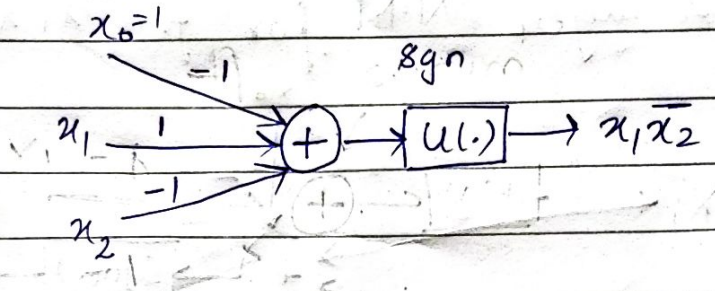 x₀=1
-1
sgn
x₁ 1 + u(.) x₁x̄₂
-1
x₂